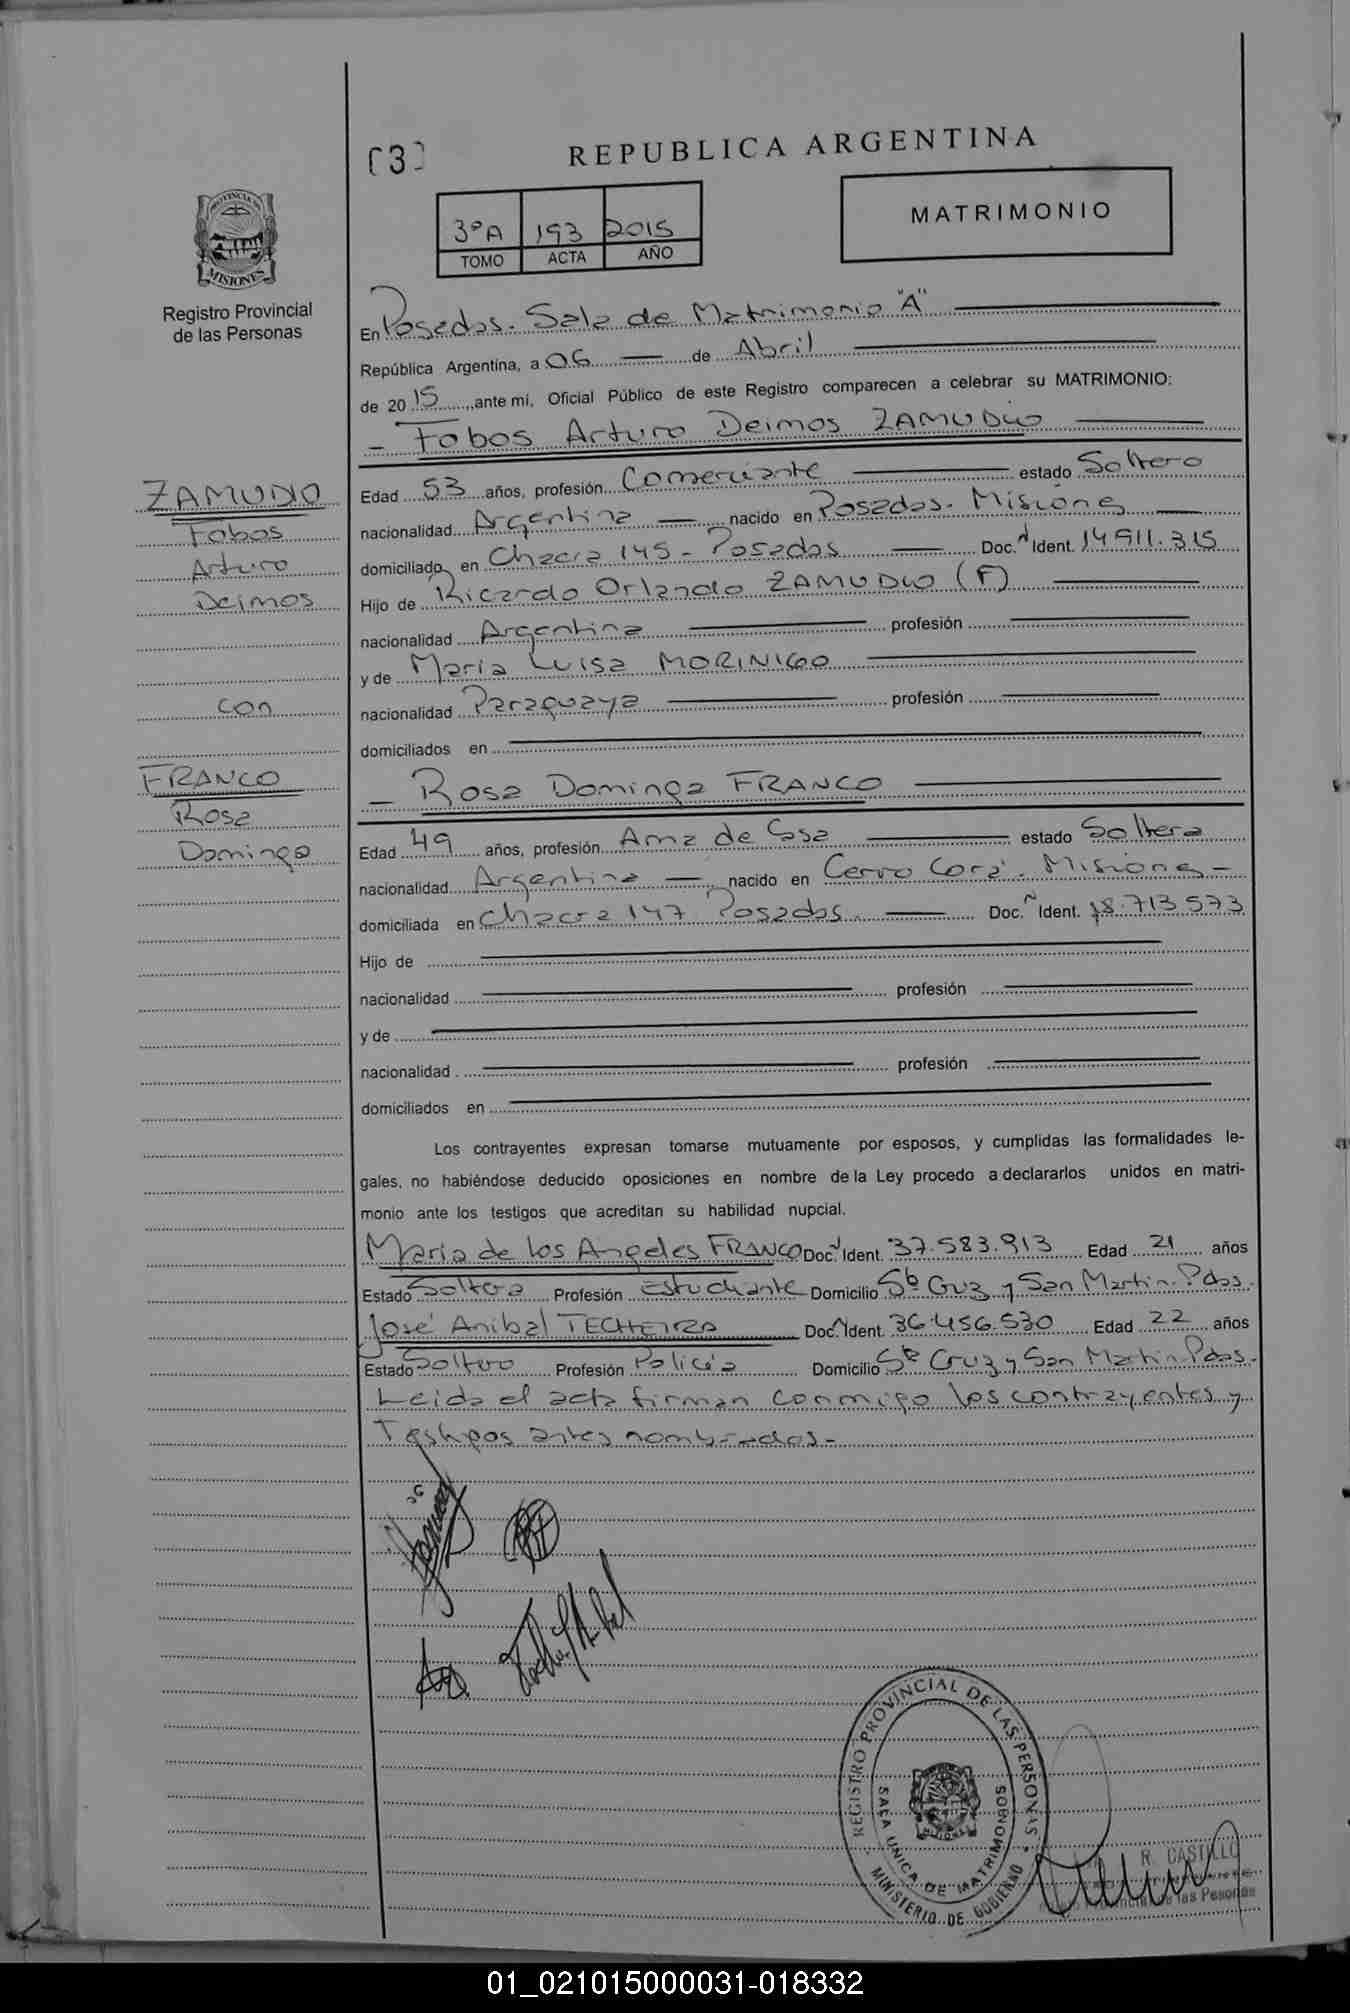 [3]
REPUBLICA ARGENTINA
3ºA 193 2015
TOMO ACTA AÑO
MATRIMONIO
PROVINCIA DE
MISIONES
Registro Provincial
de las Personas
En Posadas. Sala de Matrimonio "A"
República Argentina, a 06 de Abril
de 2015, ante mí, Oficial Público de este Registro comparecen a celebrar su MATRIMONIO:
- Fobos Arturo Deimos ZAMUDIO
Edad 53 años, profesión Comerciante estado Soltero
nacionalidad Argentina nacido en Posadas. Misiones
domiciliado en Chacra 145 - Posadas Doc. Ident. 14 911.315
Hijo de Ricardo Orlando ZAMUDIO (F)
nacionalidad Argentina profesión
y de Maria Luisa MORINIGO
nacionalidad Paraguaya profesión
domiciliados en
ZAMUDIO
Fobos
Arturo
Deimos
con
FRANCO
Rosa
Dominga
- Rosa Dominga FRANCO
Edad 49 años, profesión Ama de Casa estado Soltera
nacionalidad Argentina nacido en Cerro Corá. Misiones -
domiciliada en Chacra 147 Posadas. Doc. Ident. 18.713.573
Hijo de
nacionalidad profesión
y de
nacionalidad profesión
domiciliados en
Los contrayentes expresan tomarse mutuamente por esposos, y cumplidas las formalidades le-
gales, no habiéndose deducido oposiciones en nombre de la Ley procedo a declararlos unidos en matri-
monio ante los testigos que acreditan su habilidad nupcial.
Maria de los Angeles FRANCO Doc. Ident. 37.583.913 Edad 21 años
Estado Soltera Profesión Estudiante Domicilio Sta Cruz y San Martin. Pdas.
José Anibal TECHEIRA Doc. Ident. 36.456.530 Edad 22 años
Estado Soltero Profesión Policía Domicilio Sta Cruz y San Martin Pdas.
Leida el acta firman conmigo los contrayentes y
Testigos antes nombrados.-
REGISTRO PROVINCIAL DE LAS PERSONAS
SALA UNICA DE MATRIMONIOS
MINISTERIO DE GOBIERNO
R. CASTILLO
las Personas
01_021015000031-018332